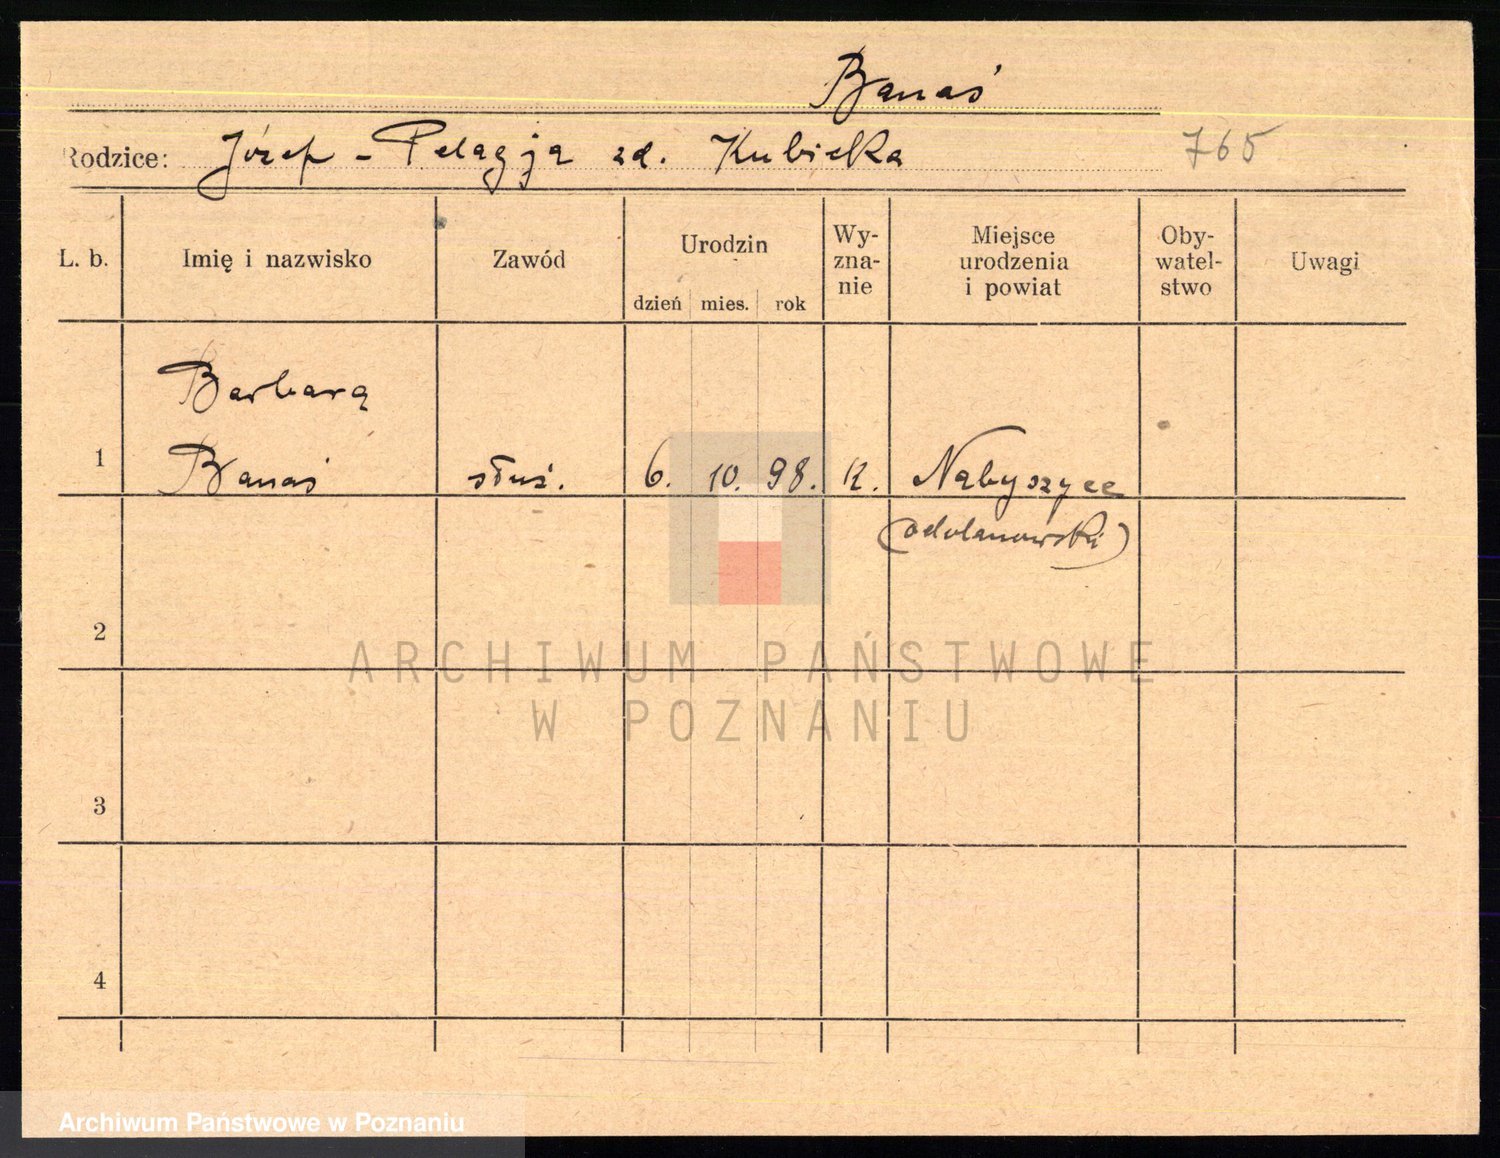 Banaś
Rodzice: Józef - Pelagja zd. Kubielka
765
L. b. Imię i nazwisko Zawód Urodzin dzień mies. rok Wy-zna-nie Miejsce urodzenia i powiat Oby-watel-stwo Uwagi
Barbara
1 Banaś służ. 6. 10. 98. k. Nabyszyce
(odolanowski)
2
3
4
ARCHIWUM PAŃSTWOWE
W POZNANIU
Archiwum Państwowe w Poznaniu